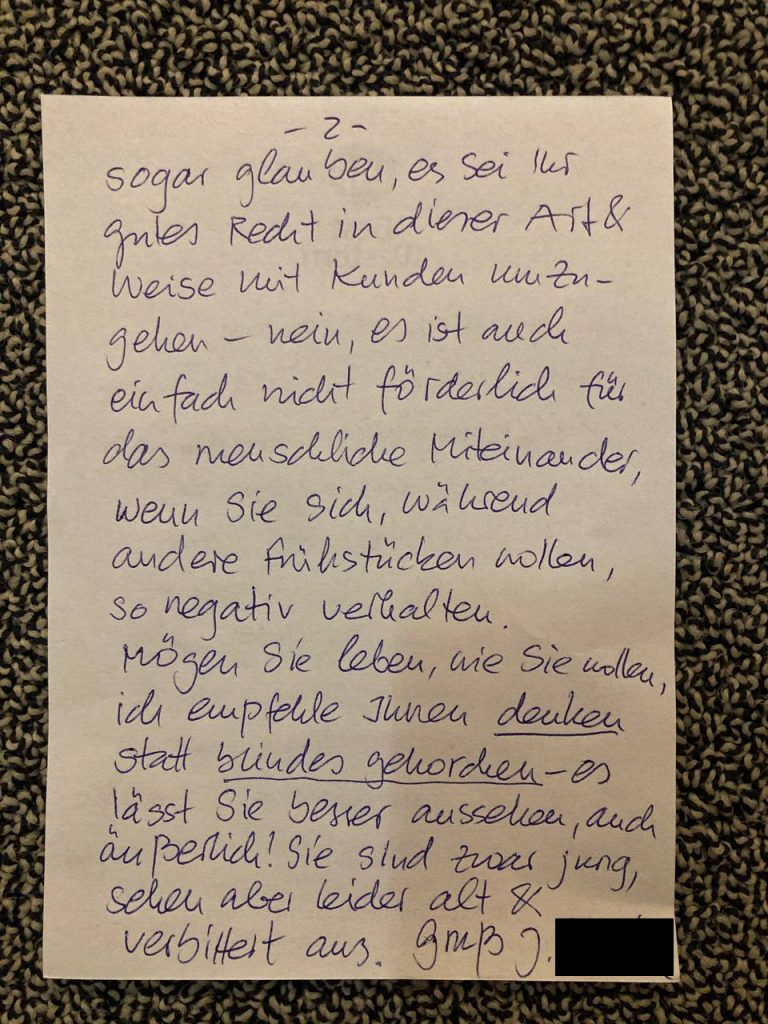 - 2 -
sogar glauben, es sei Ihr
gutes Recht in dieser Art &
Weise mit Kunden umzu-
gehen – nein, es ist auch
einfach nicht förderlich für
das menschliche Miteinander,
wenn Sie sich, während
andere frühstücken wollen,
so negativ verhalten.
Mögen Sie leben, wie Sie wollen,
ich empfehle Ihnen denken
statt blindes gehorchen – es
lässt Sie besser aussehen, auch
äußerlich! Sie sind zwar jung,
sehen aber leider alt &
verbittert aus. Gruß J.